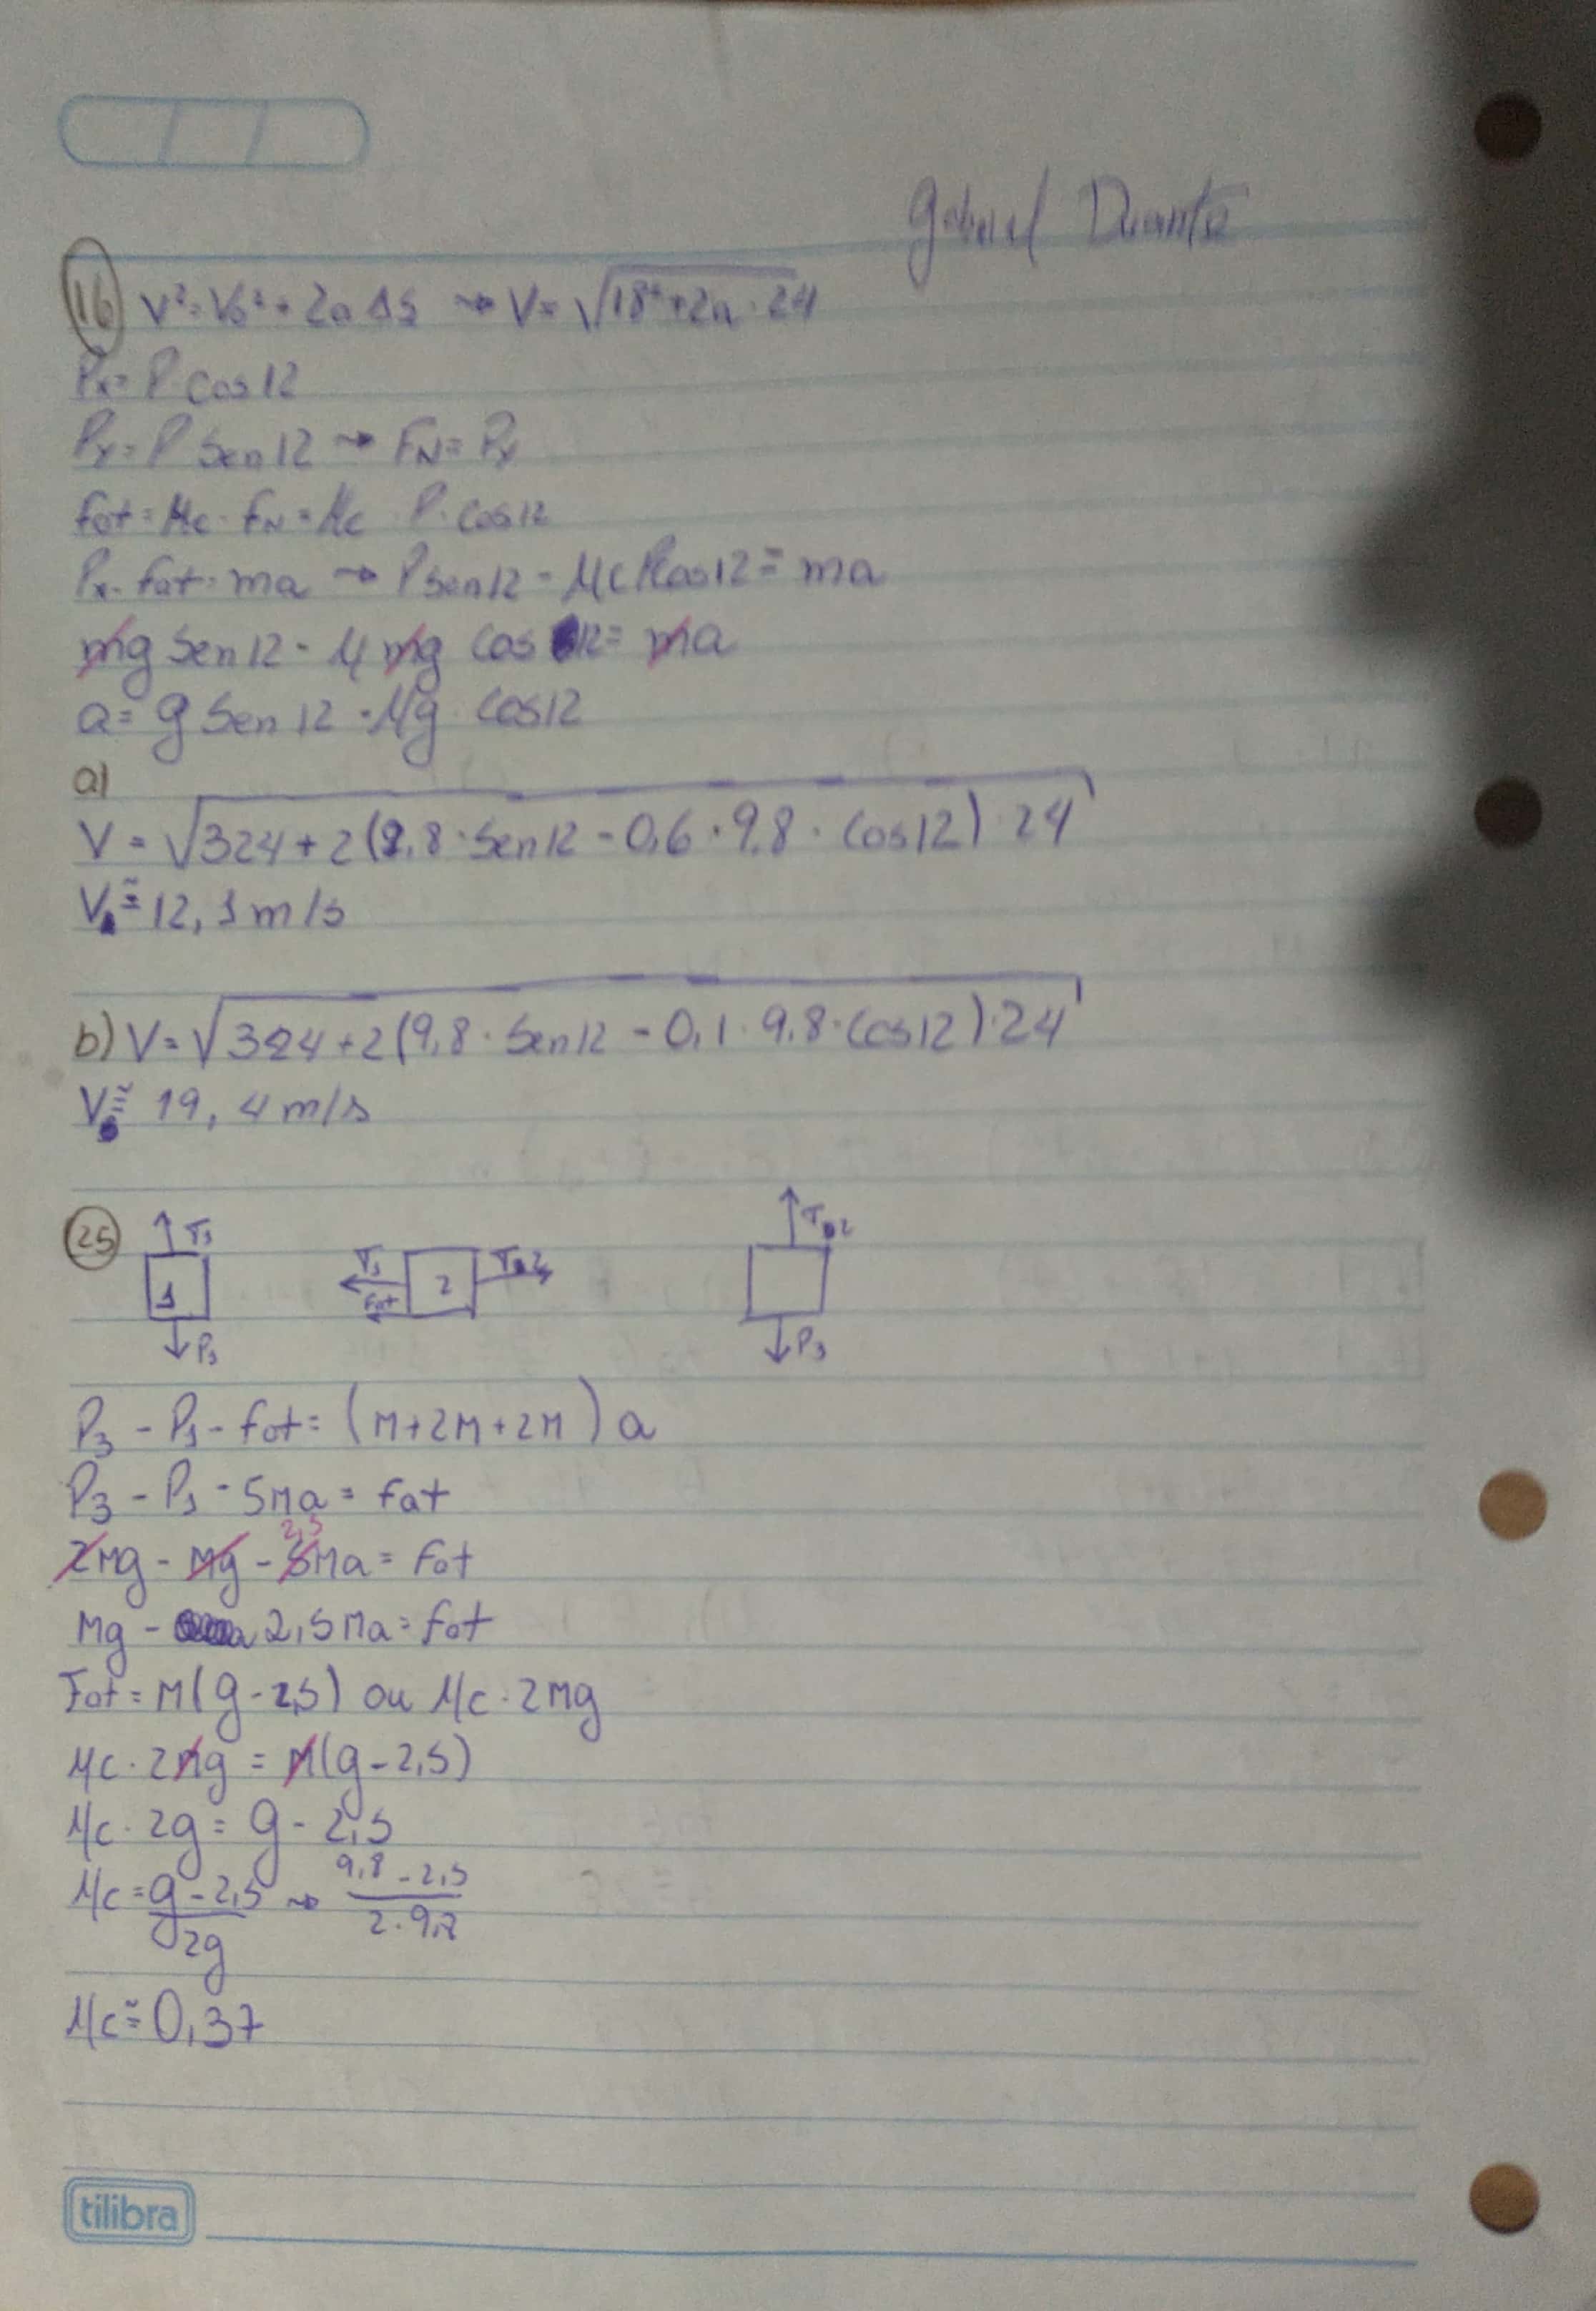 Gabriel Duarte
16 V² = Vo² + 2a ΔS → V = √18² + 2a · 24
Px = P · cos12
Py = P Sen12 → FN = Py
fat = μc · FN = μc · P · cos12
Px - fat = ma → P sen12 - μc P cos12 = ma
mg Sen12 - μ mg cos 12 = ma
a = g Sen12 - μg · cos12
a)
V = √324 + 2(9,8 · Sen12 - 0,6 · 9,8 · cos12) · 24
V ≅ 12,1 m/s
b) V = √324 + 2(9,8 · Sen12 - 0,1 · 9,8 · cos12) · 24
V ≅ 19,4 m/s
25 T1 T1 T2 T2
1 fat 2
P1 P3
P3 - P1 - fat = (M + 2M + 2M) a
P3 - P1 - 5Ma = fat
2,5
2Mg - Mg - 5Ma = fat
Mg - 2,5Ma = fat
Fat = M(g - 2,5) ou μc · 2Mg
μc · 2Mg = M(g - 2,5)
μc · 2g = g - 2,5
μc = g - 2,5 / 2g → 9,8 - 2,5 / 2 · 9,8
μc ≅ 0,37
tilibra